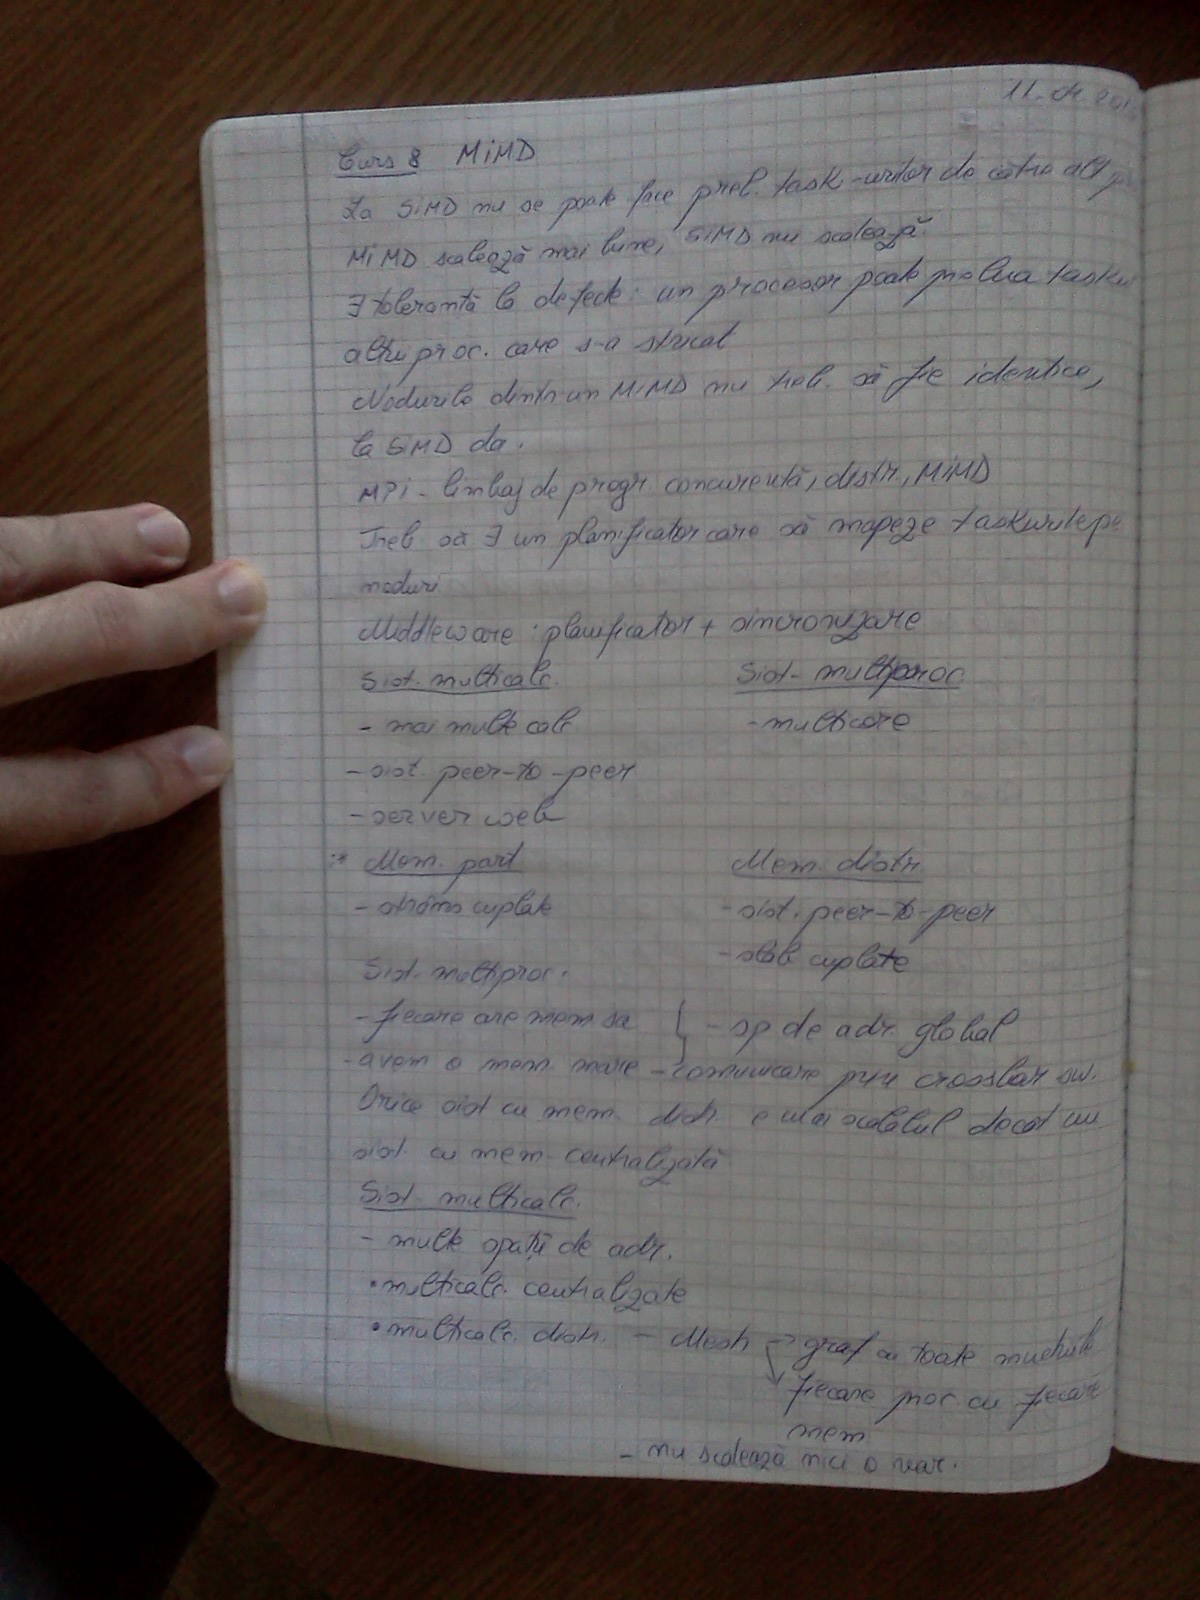 Curs 8 MiMD
La SiMD nu se poate face prel. task-urilor de către alt
MiMD scalează mai bine, SiMD nu scalează.
∃ toleranță la defecte: un procesor poate prelua
altui proc. care s-a stricat
Nodurile dintr-un MiMD nu treb. să fie identice,
la SiMD da.
MPi - limbaj de progr. concurentă, distr., MiMD
Treb să ∃ un planificator care să mapeze taskurile pe
noduri
Middleware: planificator + sincronizare
Sist. multicalc. Sist. multiproc.
- mai multe calc - multicore
- sist. peer-to-peer
- server web
Mem. part Mem. distr.
- strâns cuplate - sist. peer-to-peer
- slab cuplate
Sist. multiproc.
- fiecare are mem sa - sp de adr. global
- avem o mem. mare - comunicare prin crossbar sw.
Orice sist cu mem. distr. e mai scalabil decât un
sist. cu mem. centralizată
Sist. multicalc.
- multe spații de adr.
• multicalc. centralizate
• multicalc. distr. - Mesh → graf cu toate muchiile
fiecare proc cu fiecare
mem
- nu scalează nici o var.